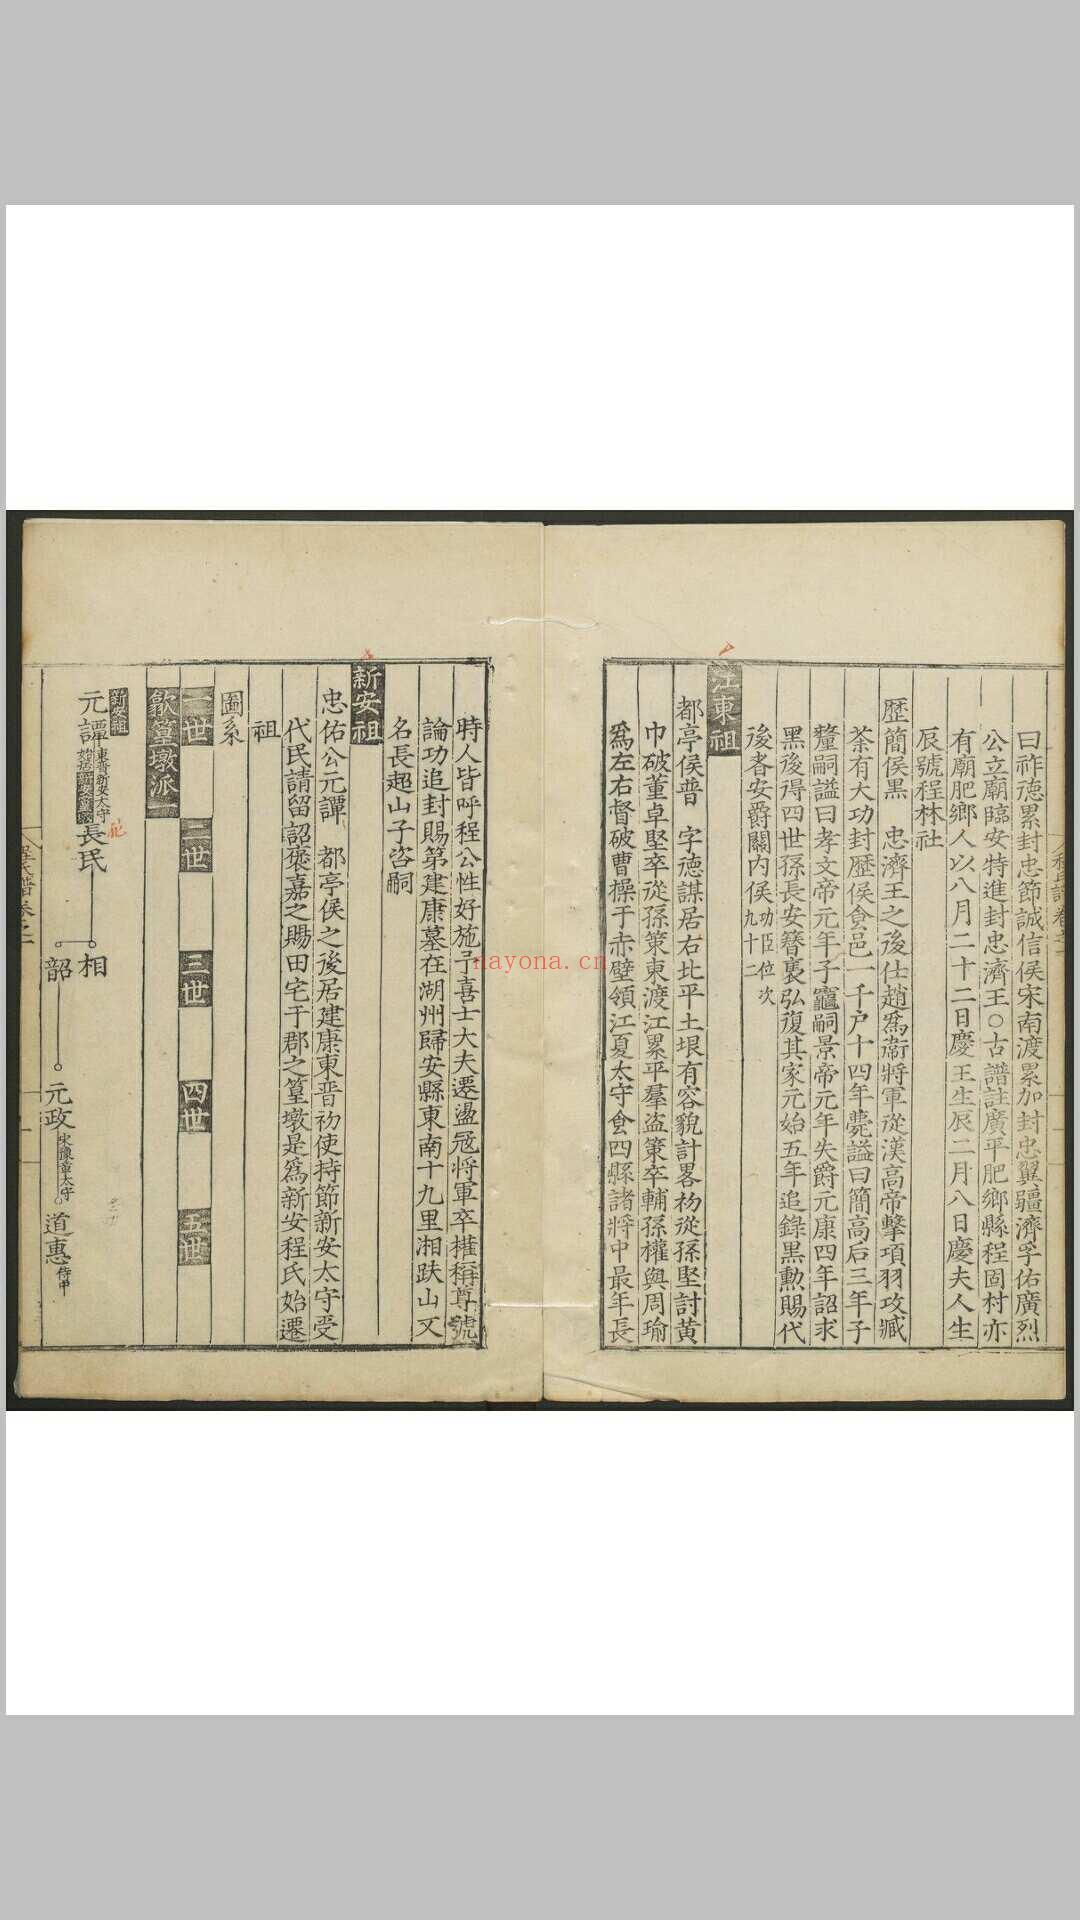 曰祚德累封忠節誠信侯宋南渡累加封忠翼彊濟孚佑廣烈
公立廟臨安特進封忠濟王○古譜註廣平肥鄉縣程固村亦
有廟肥鄉人以八月二十二日慶王生辰二月八日慶夫人生
辰號程林社
歷簡侯黑　忠濟王之後仕趙爲衞將軍從漢高帝擊項羽攻臧
荼有大功封歷侯食邑一千户十四年薨謚曰簡高后三年子
釐嗣謚曰孝文帝元年子竈嗣景帝元年失爵元康四年詔求
黑後得四世孫長安簪裊弘復其家元始五年追錄黑勲賜代
後者安爵關內侯功臣位次
九十二
江東祖
都亭侯普　字德謀居右北平土垠有容貌計畧初從孫堅討黃
巾破董卓堅卒從孫策東渡江累平羣盗策卒輔孫權與周瑜
爲左右督破曹操于赤壁領江夏太守食四縣諸將中最年長
時人皆呼程公性好施予喜士大夫遷盪冦將軍卒權稱尊號
論功追封賜第建康墓在湖州歸安縣東南十九里湘趺山又
名長超山子咨嗣
新安祖
忠佑公元譚　都亭侯之後居建康東晉初使持節新安太守受
代民請留詔褒嘉之賜田宅于郡之篁墩是爲新安程氏始遷
祖
圖系
一世
二世
三世
四世
五世
歙篁墩派一
新安祖
元譚東晉新安太守
始居新安篁墩
長民
相
韶
元政宋豫章太守
道惠侍中
nayona.cn